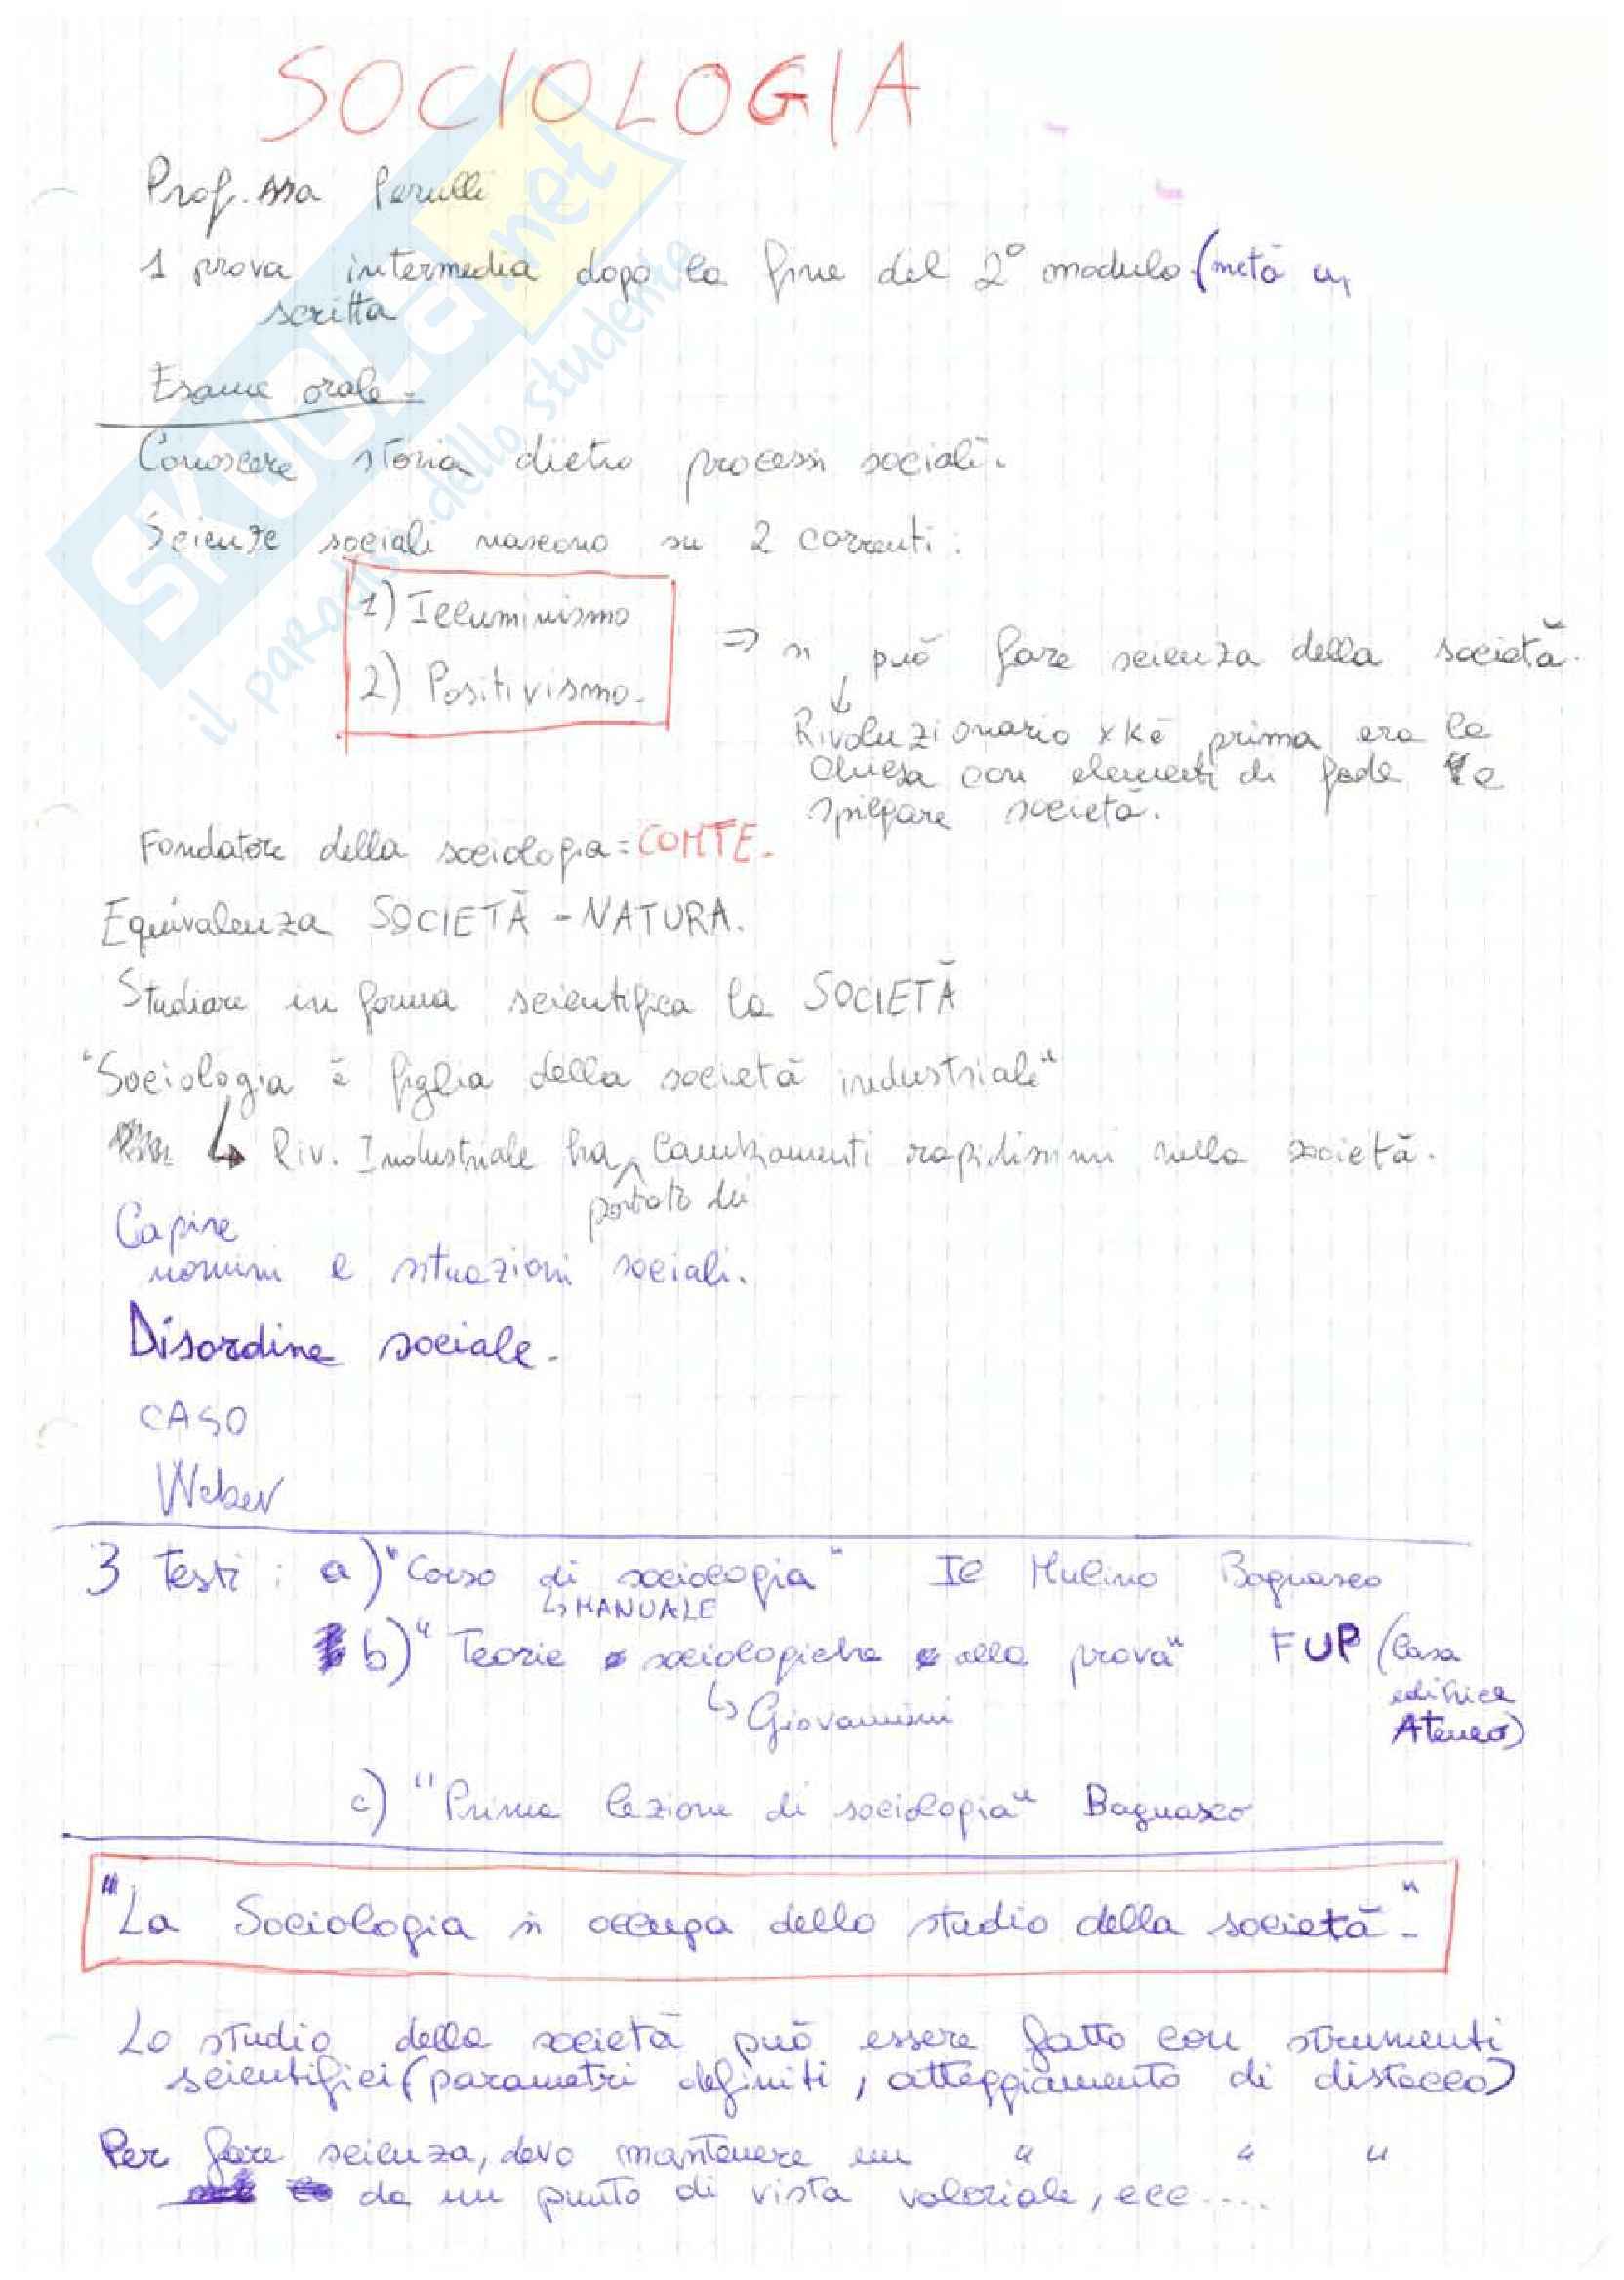 SOCIOLOGIA
Prof.ssa Perulli
1 prova intermedia dopo la fine del 2° modulo (metà
scritta
Esame orale -
Conoscere storia dietro processi sociali.
Scienze sociali nascono su 2 correnti:
1) Illuminismo
2) Positivismo.
=> si può fare scienza della società.
↓
Rivoluzionario xké prima era la
chiesa con elementi di fede e
spiegare società.
Fondatore della sociologia = COMTE.
Equivalenza SOCIETÀ - NATURA.
Studiare in forma scientifica la SOCIETÀ
"Sociologia è figlia della società industriale"
↳ Riv. Industriale ha ^ cambiamenti rapidissimi nella società.
portato dei
Capire
uomini e situazioni sociali.
Disordine sociale.
CASO
Weber
3 testi: a) "Corso di sociologia" Il Mulino Bagnasco
↳ MANUALE
b) "Teorie sociologiche alla prova" FUP (Casa
editrice
Ateneo)
↳ Giovannini
c) "Prima lezione di sociologia" Bagnasco
"La Sociologia si occupa dello studio della società".
Lo studio della società può essere fatto con strumenti
scientifici (parametri definiti, atteggiamento di distacco)
Per fare scienza, devo mantenere un " " "
da un punto di vista valoriale, ecc....
SKUOLA.net
il paradiso dello studente